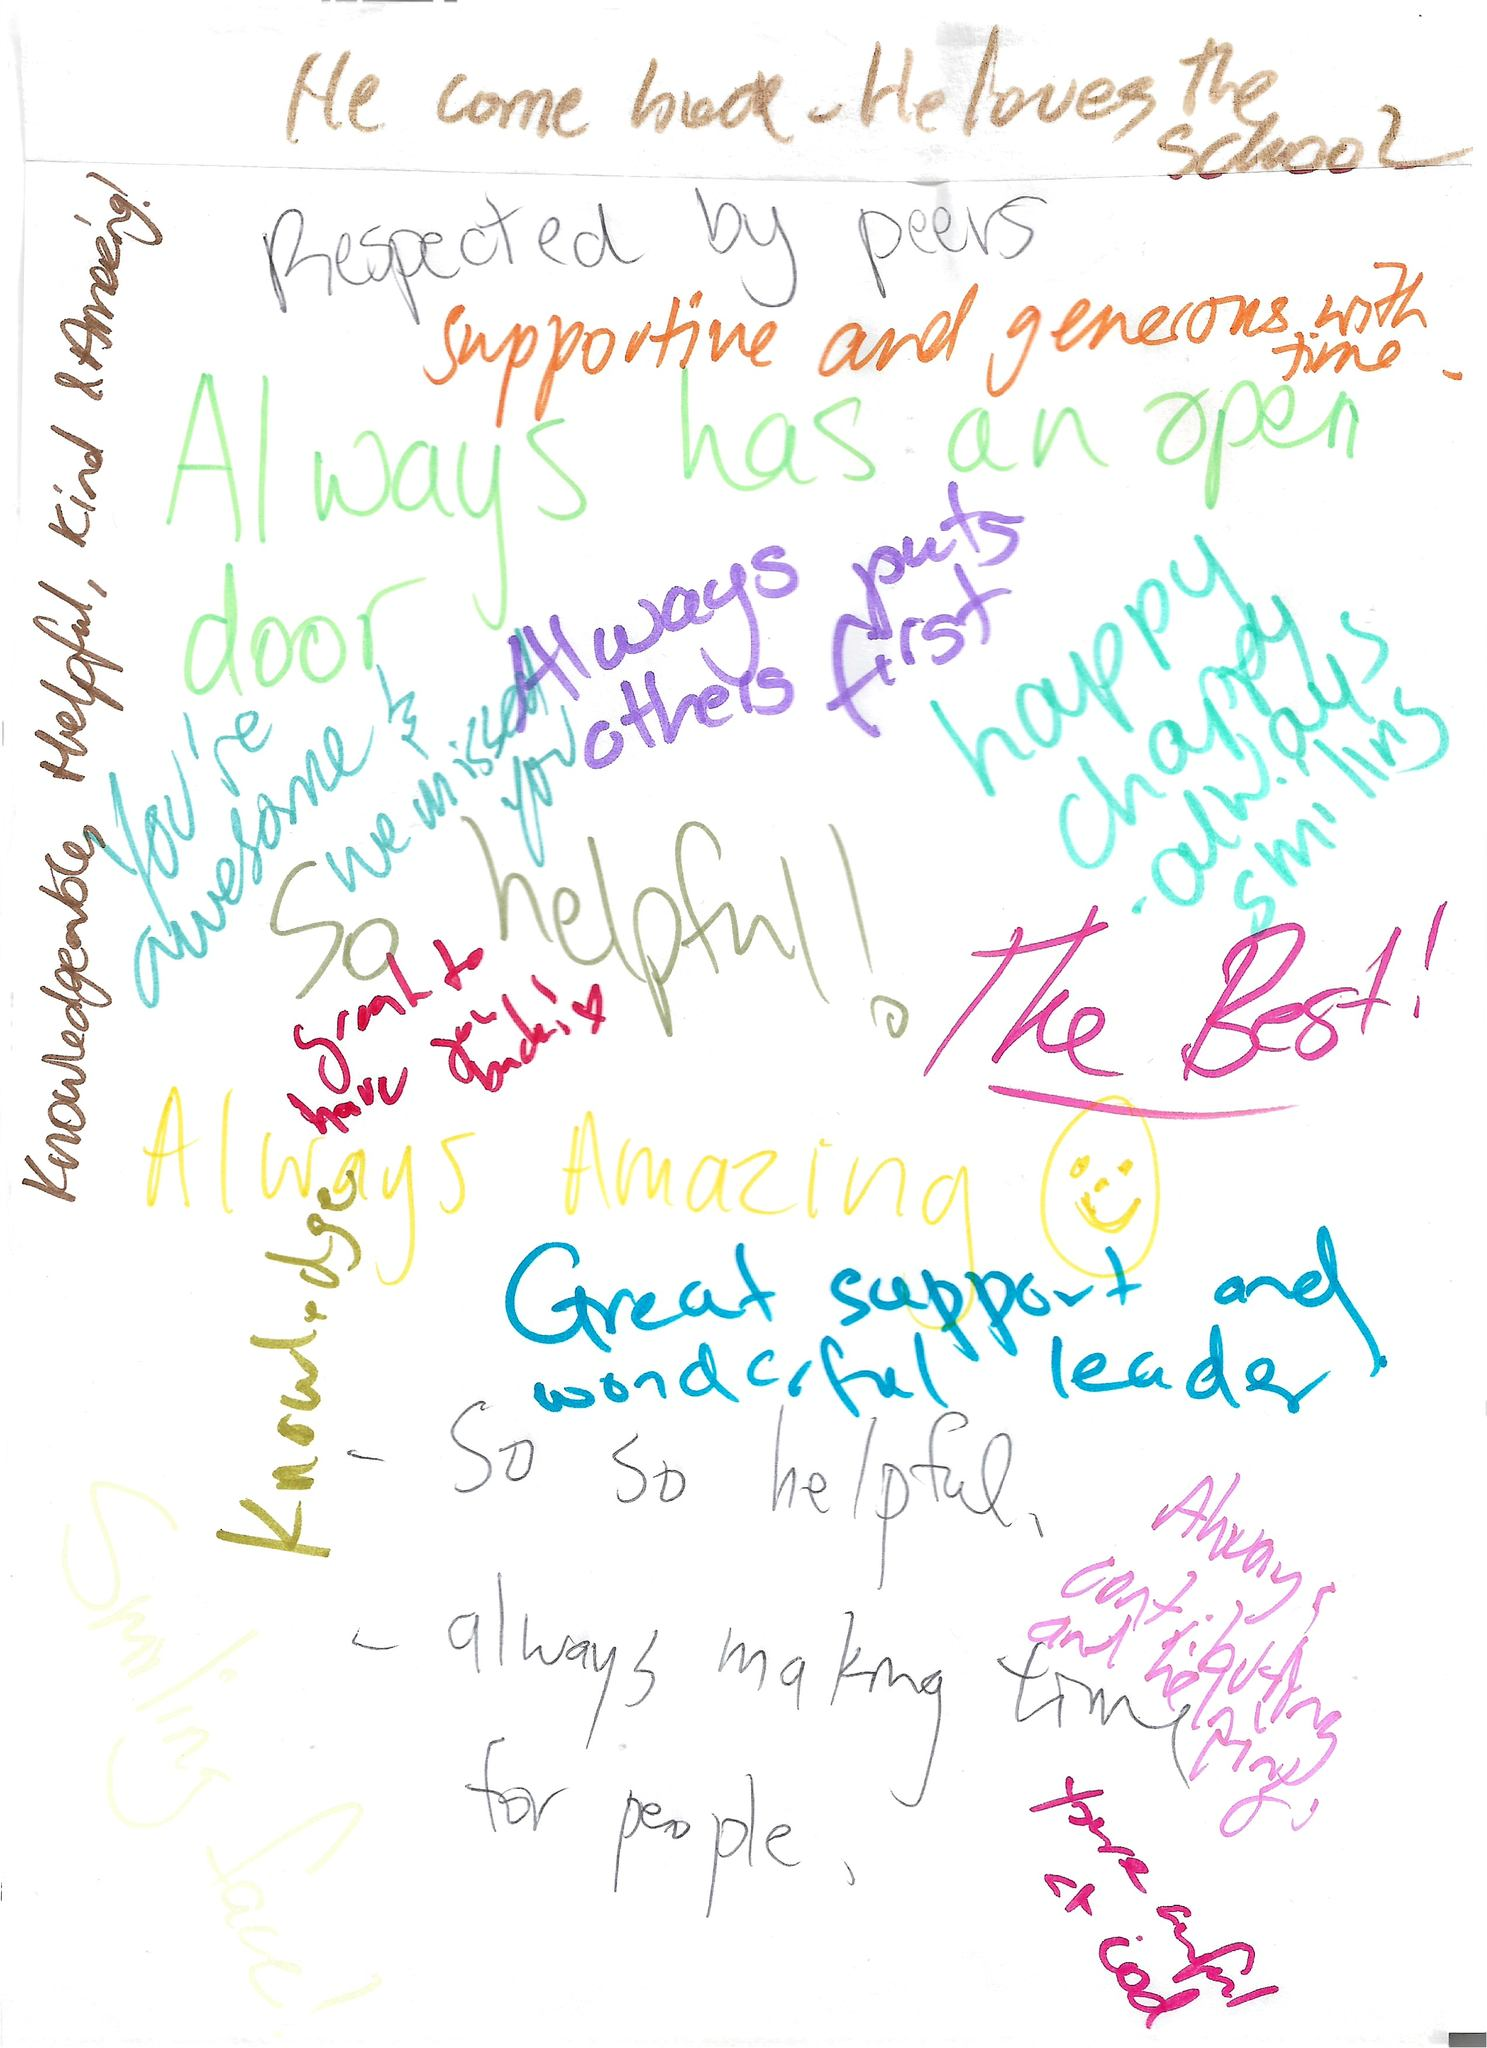 He come back. He loves the
school
Respected by peers
supportive and generous with
time.
Always has an open
door
Always puts
others first
happy
chappy
always
smiling
You're
awesome &
we missed
you
So helpful!
The Best!
great to
have you
back! ♡
Knowledgeable, Helpful, Kind & Amazing!
Always Amazing
Knowledge
Great support and
wonderful leader!
- So so helpful.
- always making time
for people.
Always
contributing
and helping.
Smiling face!